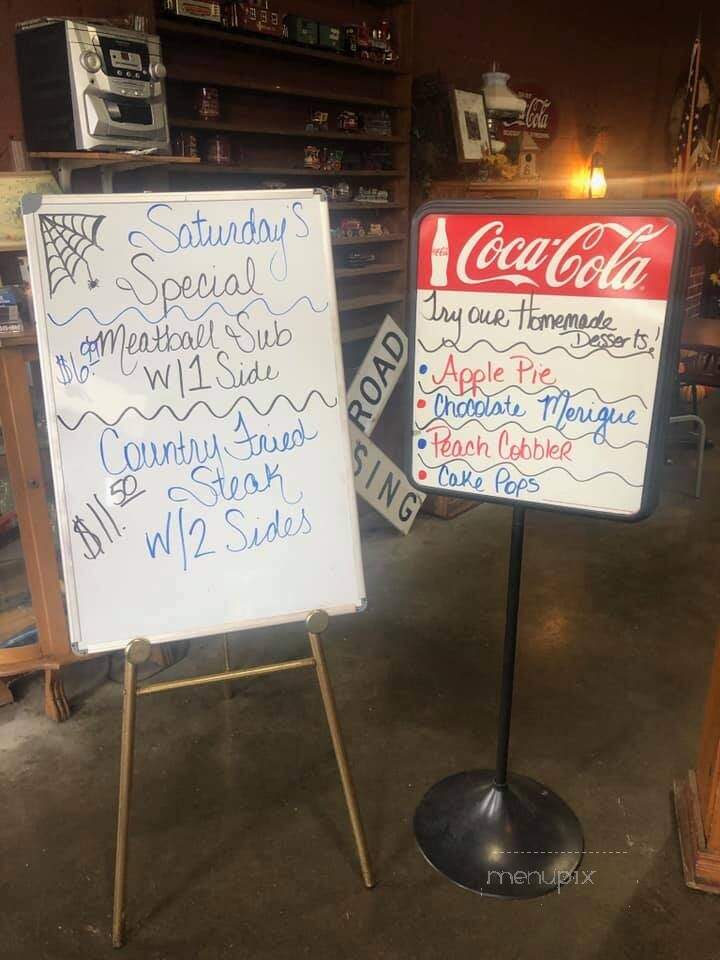 Saturday's
Special
Meatball Sub
W/1 Side
Country Fried
Steak
$11.50
W/2 Sides
ROAD
SING
Coca-Cola
Try our Homemade
Desserts!
Apple Pie
Chocolate Merigue
Peach Cobbler
Cake Pops
Cola
menupix